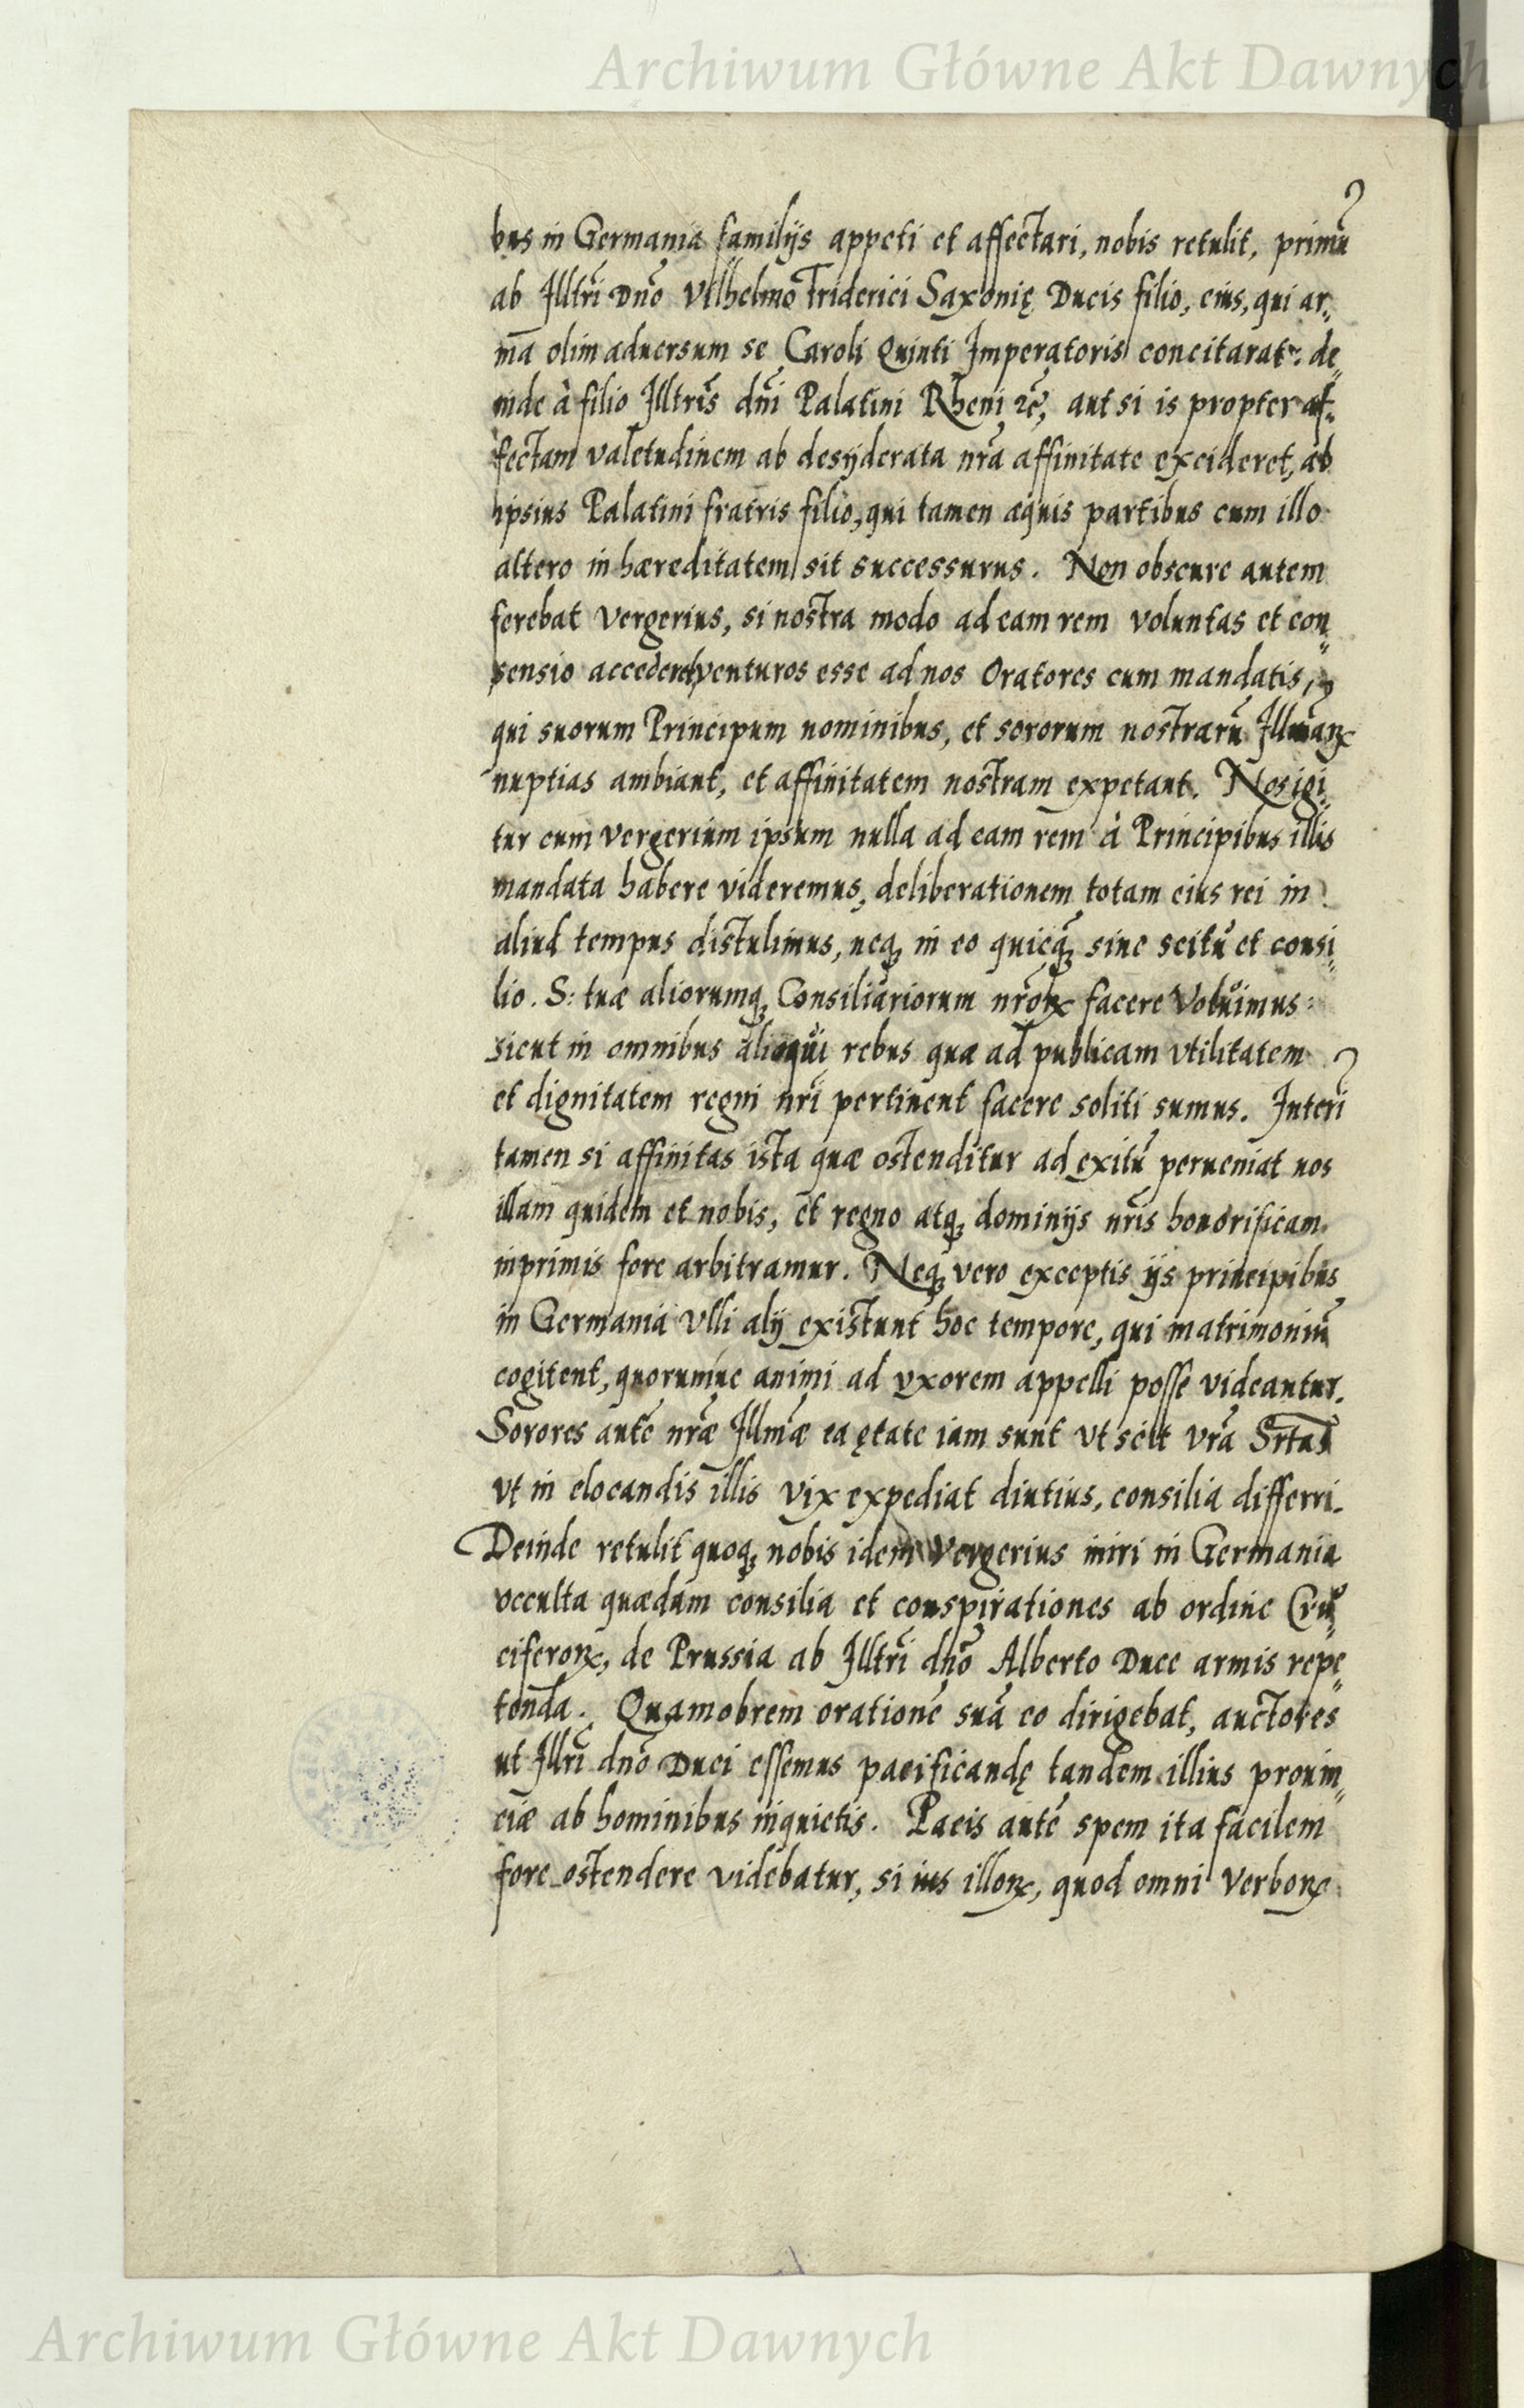 Archiwum Główne Akt Dawnych
bus in Germania familijs appeti et affectari, nobis retulit, primū
ab Illtri Dno Vilhelmo Friderici Saxonię Ducis filio, eius, qui ar„
ma olim aduersum se Caroli Quinti Imperatoris concitarat: de„
inde à filio Illtris dni Palatini Rheni &c, aut si is propter af„
fectam valetudinem ab desyderata nra affinitate excideret, ab
ipsius Palatini fratris filio, qui tamen æquis partibus cum illo
altero in hæreditatem sit successurus. Non obscure autem
ferebat Vergerius, si nostra modo ad eam rem voluntas et con„
sensio accederet, venturos esse ad nos Oratores cum mandatis,
qui suorum Principum nominibus, et sororum nostrarū Illmarꝝ
nuptias ambiant, et affinitatem nostram expetant. Nos igi„
tur cum Vergerium ipsum nulla ad eam rem à Principibus illis
mandata habere videremus, deliberationem totam eius rei in
aliud tempus distulimus, neqꝫ in eo quicqꝫ sine scitu et consi„
lio. S: tuæ aliorumqꝫ Consiliariorum nrorꝝ facere Voluimus:
sicut in omnibus alioqui rebus quæ ad publicam vtilitatem
et dignitatem regni nri pertinent facere soliti sumus. Interi
tamen si affinitas ista quæ ostenditur ad exitū perueniat nos
illam quidem et nobis, et regno atqꝫ dominijs nris honorificam
inprimis fore arbitramur. Neqꝫ vero exceptis ijs principibus
in Germania Vlli alij existunt hoc tempore, qui matrimoniū
cogitent, quorumue animi ad vxorem appelli posse videantur.
Sorores autē nræ Illmæ ea ętate iam sunt vt scit vra Srtas
vt in elocandis illis vix expediat diutius, consilia differri.
Deinde retulit quoqꝫ nobis idem Vergerius iniri in Germania
occulta quædam consilia et conspirationes ab ordine Cru„
ciferorꝝ, de Prussia ab Illtri dno Alberto Duce armis repe„
tenda. Quamobrem orationē suā eo dirigebat, auctores
ut Illri dno Duci essemus pacificandę tandem illius prouin„
ciæ ab hominibus inquietis. Pacis autē spem ita facilem
fore ostendere videbatur, si ius illorꝝ, quod omni verborꝝ
Archiwum Główne Akt Dawnych